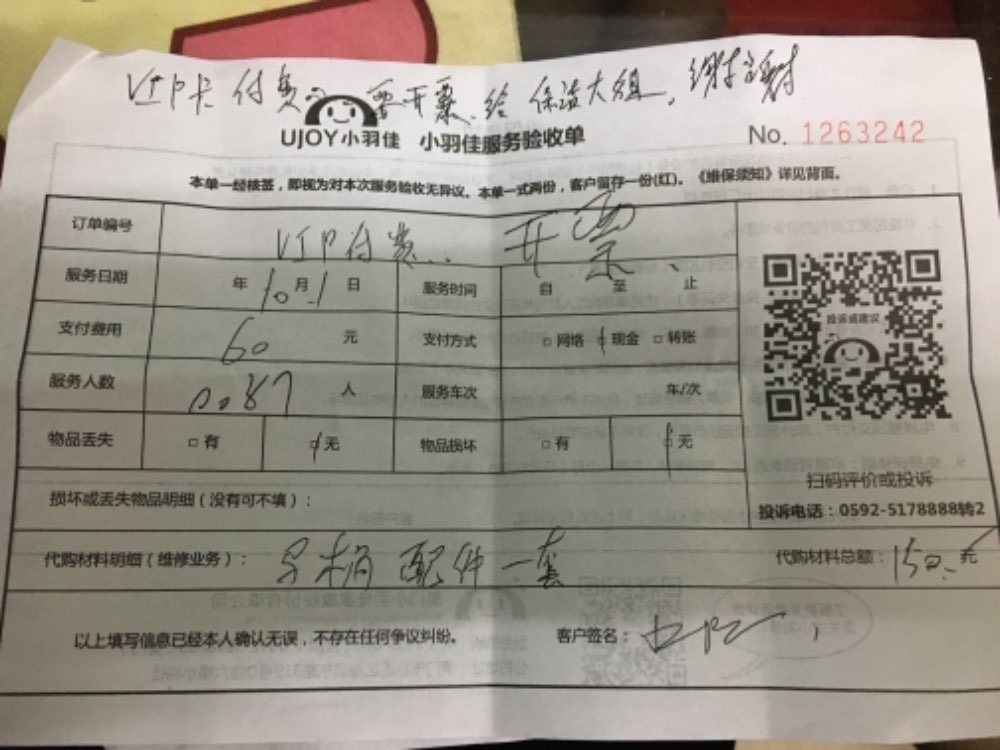 VIP卡付费 需开票、给保洁大姐,谢谢
UJOY小羽佳 小羽佳服务验收单
No. 1263242
本单一经核签,即视为对本次服务验收无异议。本单一式两份,客户留存一份(红)。《维保须知》详见背面。
订单编号 VIP付费.. 开票、
服务日期 年10月1日 服务时间 自 至 止
支付费用 60 元 支付方式 □网络 □现金 □转账
服务人数 0087 人 服务车次 车/次
物品丢失 □有 □无 物品损坏 □有 □无
投诉或建议
扫码评价或投诉
投诉电话:0592-5178888转2
损坏或丢失物品明细(没有可不填):
代购材料明细(维修业务): 马桶配件一套 代购材料总额: 150.元
以上填写信息已经本人确认无误,不存在任何争议纠纷。 客户签名: